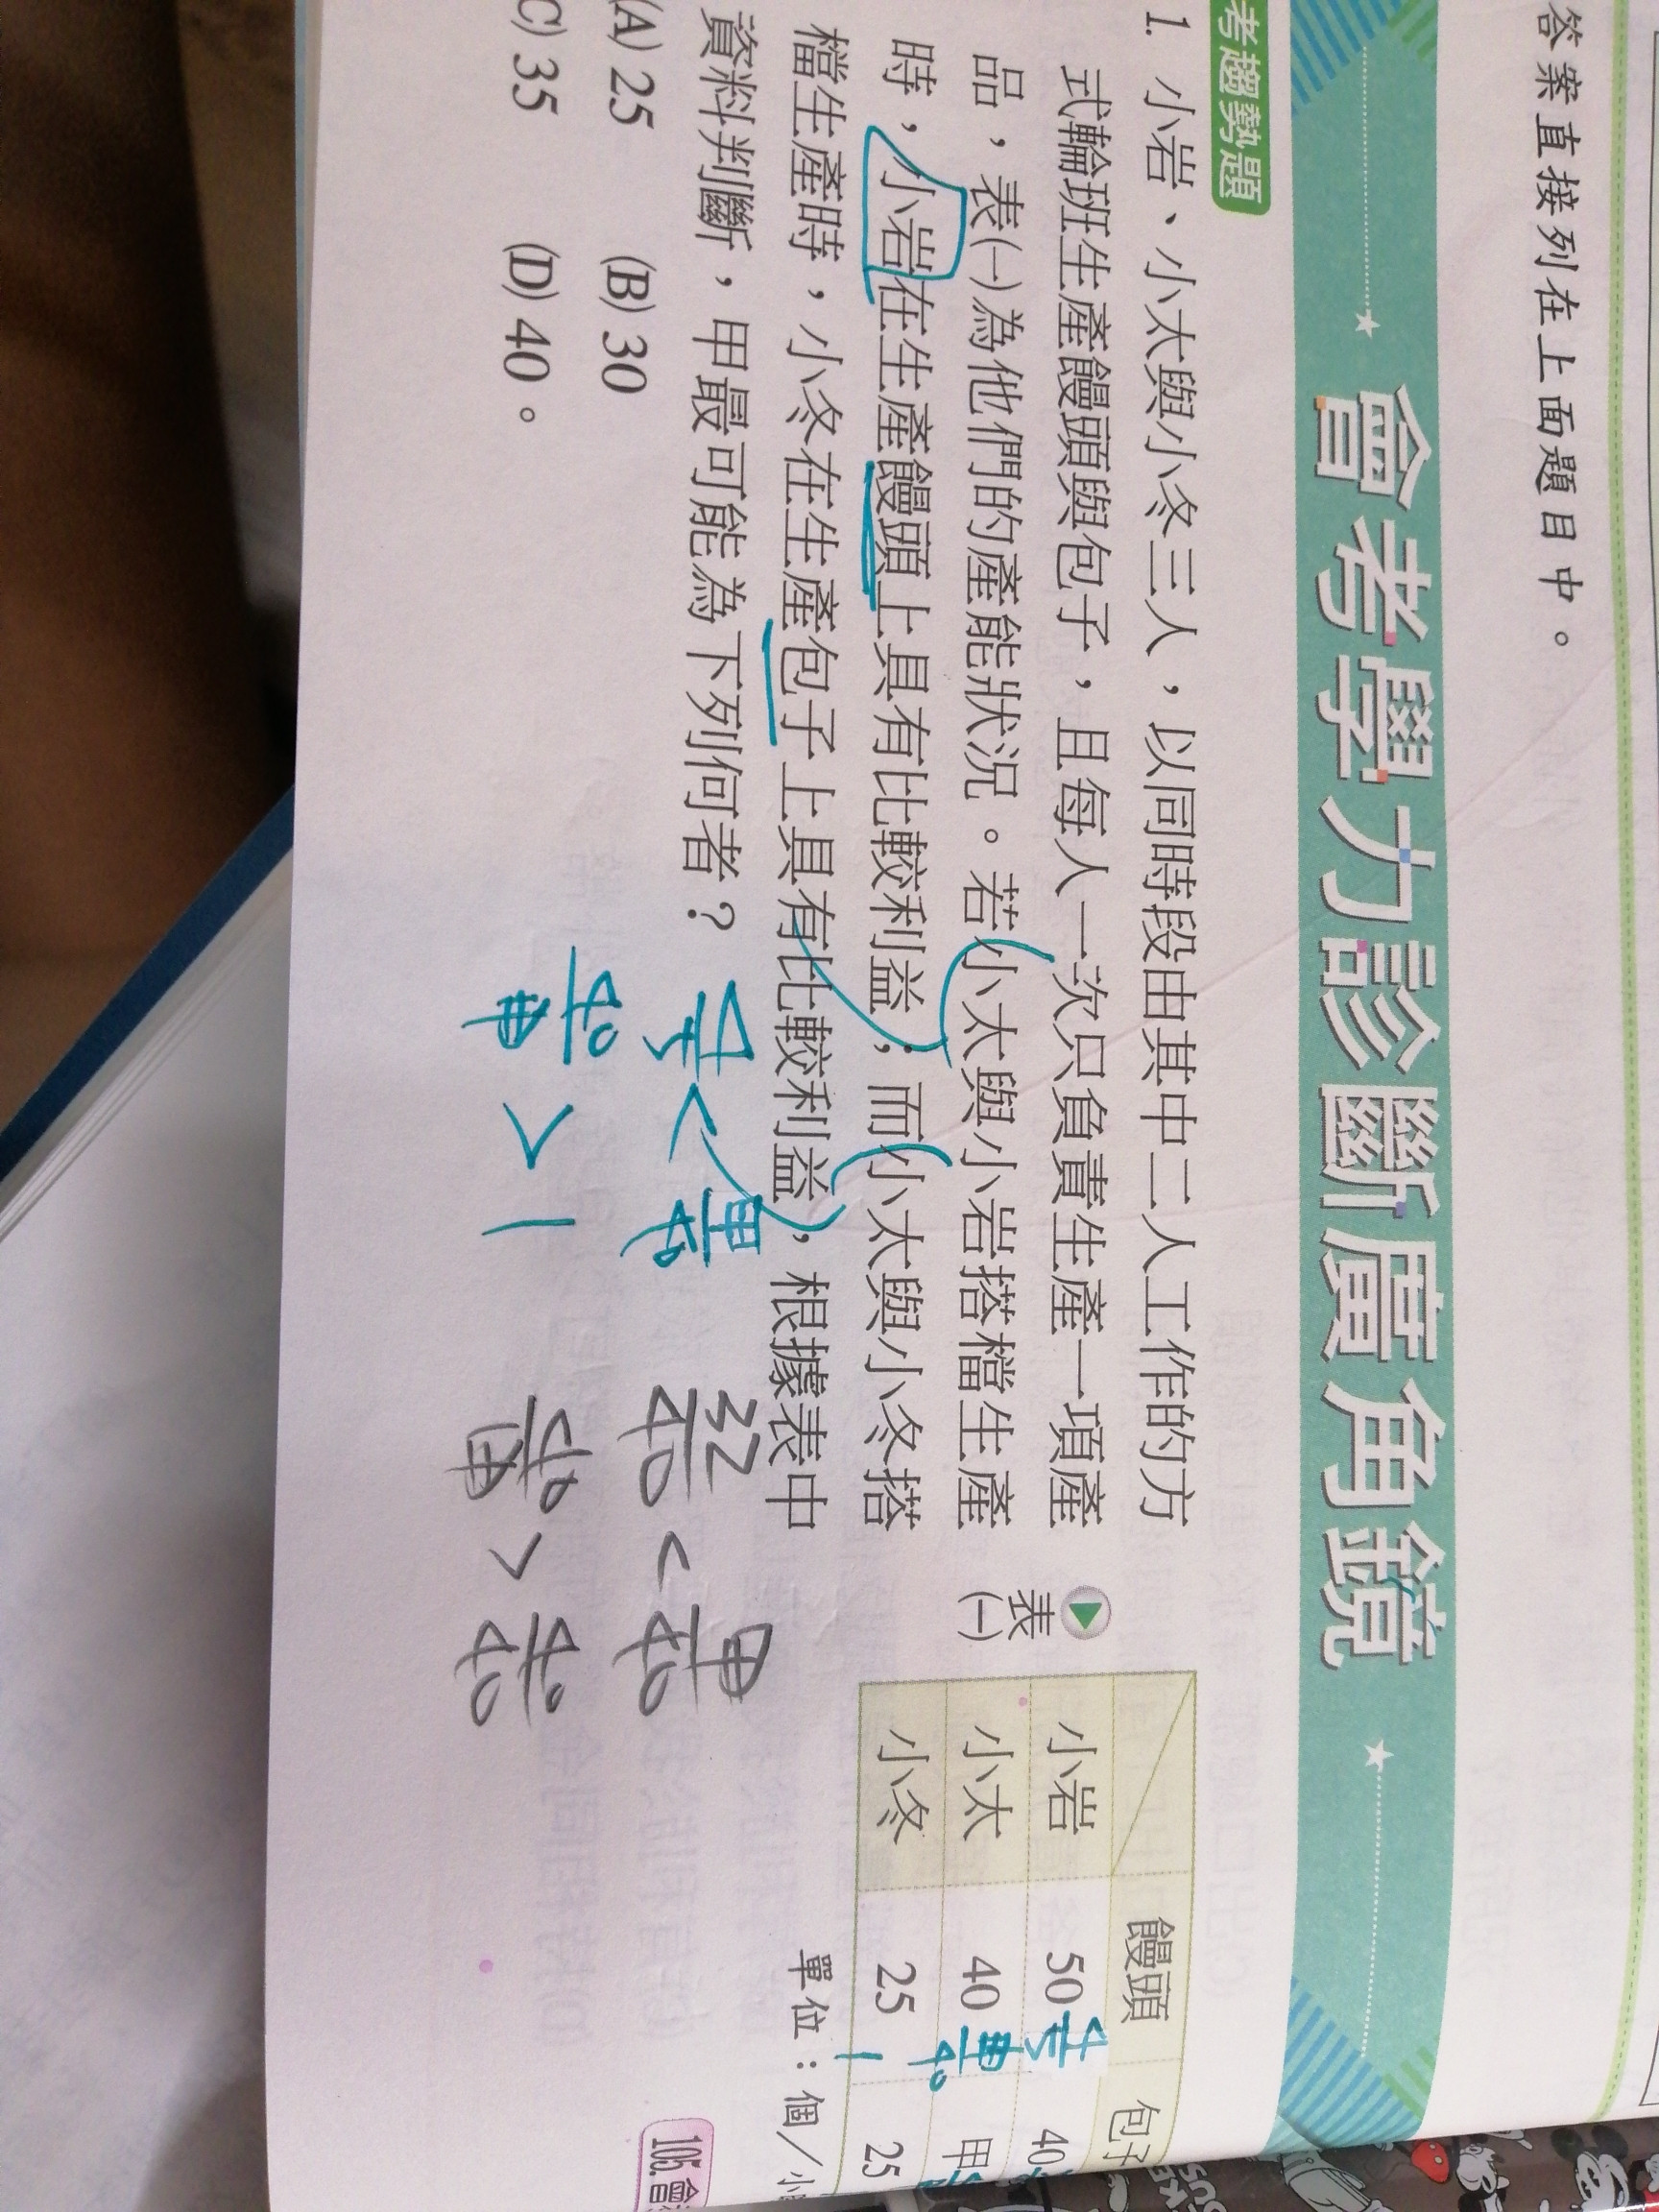 答案直接列在上面題目中。
會考學力診斷廣角鏡
考趨勢題
1. 小岩、小太與小冬三人，以同時段由其中二人工作的方
式輪班生產饅頭與包子，且每人一次只負責生產一項產
品，表㈠為他們的產能狀況。若小太與小岩搭檔生產
時，小岩在生產饅頭上具有比較利益；而小太與小冬搭
檔生產時，小冬在生產包子上具有比較利益，根據表中
資料判斷，甲最可能為下列何者？
(A) 25 (B) 30
C) 35 (D) 40。
表㈠
饅頭 包子
小岩 50 40
小太 40 甲
小冬 25 25
單位：個／小
105.會
4/5 < 甲/40
40/甲 > 1
32/40 < 甲/40
40/甲 > 40/40
4/5
甲/40
1